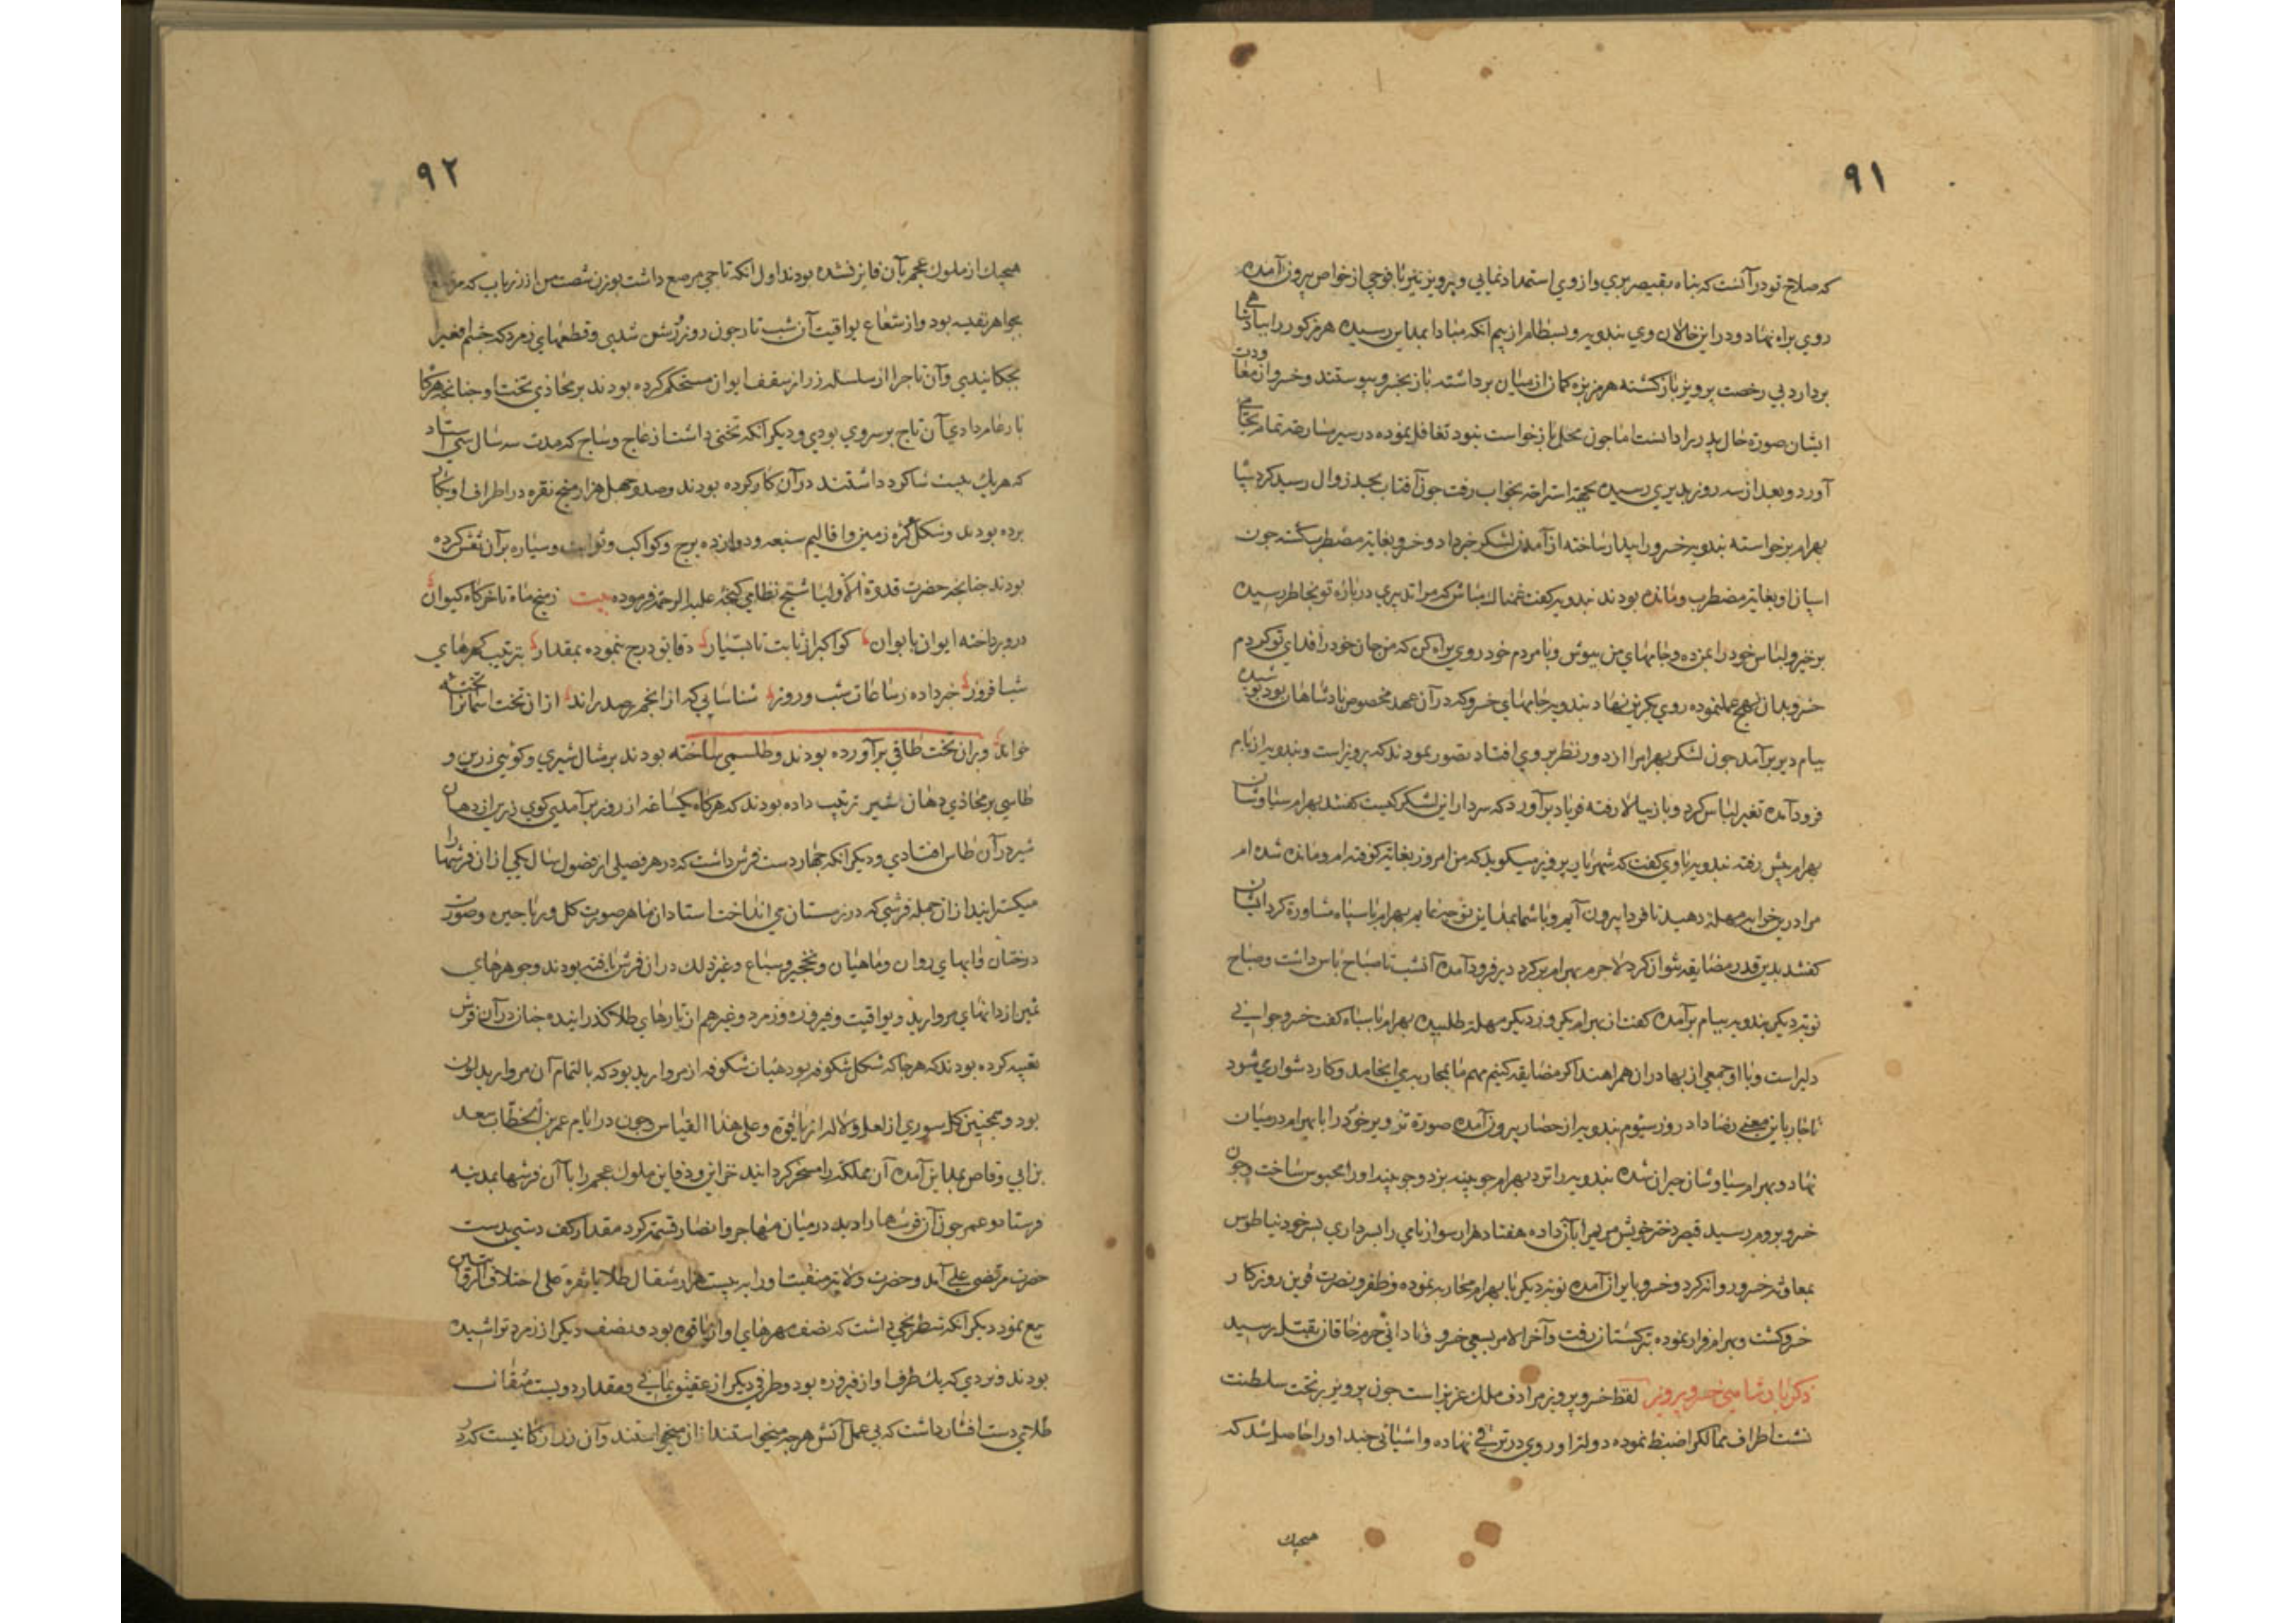 ۹۱
که صلاح تو در آنست که پناه بقیصر بری و از وی استمداد نمایی و پرویز نیز با فوجی از خواص بیرون آمده
روی براه نهاد و در این حال خالان وی بندویه و بسطام از بیم آنکه مبادا بمداین رسیده هرمز کور را بپادشاهی
بردارد بی رخصت پرویز بازکشته هرمز بزه کمان از میان برداشته باز بخسرو پیوستند و خسرو از معاودت
ایشان صورة حال پدر را دانست اما چون محل بازخواست نبود تغافل نموده در سیر مسارعه تمام بجای
آورد و بعد از سه روز بدیری رسیده بجهة استراحة بخواب رفت چون آفتاب بحد زوال رسید کرد سپاه
بهرام برخواسته بندویه خسرو را بیدار ساخته از آمدن لشکر خبر داد و خسرو بغایة مضطرب کشته چون
اسپان او بغایة مضطرب و مانده بودند بندویه کفت غمناك مباش که مرا تدبیری درباره تو بخاطر رسیده
برخیز و لباس خود را بمن ده و جامهای من بپوش و با مردم خود روی براه کن که من جان خود را فدای تو کردم
خسرو بدان نهج عمل نموده روی بکریز نهاد بندویه جامهای خسرو که در آن عهد مخصوص پادشاهان بود پوشیده
ببام دیر برآمد چون لشکر بهرام را از دور نظر بر وی افتاد تصور نمودند که پرویز است و بندویه از بام
فرود آمده تغیر لباس کرد و باز ببالا رفته فریاد برآورد که سردار این لشکر کیست کفتند بهرام سیاوشان
بهرام پیش رفته بندویه با وی کفت که شهریار پرویز میکوید که من امروز بغایة کوفته ام و مانده شده ام
مرا درین خواب مهلة دهید تا فردا بیرون آیم و با شما بمداین توجه نمایم بهرام با سپاه مشاورة کرد ایشان
کفتند بدین قدر مضایقه نتوان کرد لاجرم بهرام بر کرد دیر فرود آمده آنشب تا صباح پاس داشت و صباح
نوبة دیکر بندویه ببام برآمده کفت از بهرام یکروز دیکر مهلة طلبیده بهرام با سپاه کفت خسرو جوانی
دلیر است و با او جمعی از بهادران همراهند اکر مضایقه کنیم مهم ما بمحاربه انجامد و کار دشواری شود
ناچار باین معنی رضا داد روز سیوم بندویه از حصار بیرون آمده صورة تزویر خود را با بهرام در میان
نهاد و بهرام سیاوشان حیران شده بندویه را نزد بهرام چوبینه برد و چوبینه او را محبوس ساخت و چون
خسرو بروم رسید قیصر دختر خویش مریم را باو داده هفتاد هزار سوار نامی را بسرداری پسر خود نیاطوس
بمعاونة خسرو روانه کرد و خسرو بایران آمده نوبة دیکر با بهرام محاربه نموده و ظفر و نصرت قرین روزکار
خسرو کشت و بهرام فرار نموده بترکستان رفت و آخر الامر بسعی خسرو و نادانی حرم خاقان بقتل رسید
ذکر پادشاهی خسرو پرویز لفظ خسرو پرویز مرادف ملك عزیز است چون پرویز بر تخت سلطنت
نشست اطراف ممالك را ضبط نموده دولة او روی در ترقی نهاده و اشیائی چند او را حاصل شد که
هیچیك
۹۲
هیچیك از ملوك عجم بآن فایز نشده بودند اول انکه تاجی مرصع داشت بوزن شصت من از زر ناب که
بجواهر نفیسه بود و از شعاع یواقیت آن شب تار چون روز روشن شدی و قطعهای زمرد که چشم افعی را
بچکانیدی و آن تاج را از سلسله زر از سقف ایوان مستحکم کرده بودند بر محاذی تخت او چنانچه هرکاه
بار عام دادی آن تاج بر سر وی بودی و دیکر انکه تختی داشت از عاج و ساج که مدت سه سال سی استاد
که هریك بیست شاکرد داشتند در آن کار کرده بودند و صد و چهل هزار میخ نقره در اطراف او بکار
برده بودند و شکل کره زمین و اقالیم سبعه و دوازده برج و کواکب و ثوابت و سیاره بر آن نقش کرده
بودند چنانچه حضرت قدوة الاولیا شیخ نظامی کنجه علیه الرحمه فرموده بیت ز میخ ماه تا خرکاه کیوان
درو پرداخته ایوان بایوان کواکب را ز ثابت تا بسیار دقایق درج نموده بمقدار بترتیب کهرهای
شب افروز خبر داده ز ساعات شب و روز شناسایی که از انجم رصد راند از ان تخت آسمان را تخته
خواند و بر ان تخت طاقی برآورده بودند و طلسمی ساخته بودند بر مثال شیری و کویی زرین و
طاسی بر محاذی دهان شیر ترتیب داده بودند که هرکاه یکساعه از روز برآمدی کوی زرین از دهان
شیر در آن طاس افتادی و دیکر انکه چهار دست فرش داشت که در هر فصلی از فصول سال یکی از ان فرشها را
میکسترانید از ان جمله فرشی که در زمستان می انداخت استادان ماهر صورت کل و ریاحین و صورت
درختان و آبهای روان و ماهیان و نخجیر و سباع و غیر ذلك در ان فرش بافته بودند و جوهرهای
ثمین از دانهای مروارید و یواقیت و فیروزه و زمرد و غیرهم از تارهای طلا کذرانیده چنان در آن فرش
تعبیه کرده بودند که هرجا که شکل شکوفه بود همان شکوفه از مروارید بود که بالتمام آن مروارید لون
بود و همچنین کل سوری از لعل و لاله از یاقوة و علی هذا القیاس و چون در ایام عمر بن الخطاب سعد
بن ابی وقاص بمداین آمده آن مملکة را مسخر کردانید خزاین و دفاین ملوك عجم را با آن فرشها بمدینه
فرستاد و عمر چون آن فرشها را دید در میان مهاجر و انصار قسمة کرد مقدار کف دستی بدست
حضرت مرتضی علی آمد و حضرت ولایة منقبت او را به بیست هزار مثقال طلا یا نقره علی اختلاف الروایتین
بیع نمود دیکر انکه شطرنجی داشت که نصف مهرهای او از یاقوة بود و نصف دیکر از زمرد تراشیده
بودند و نردی که یك طرف او از فیروزه بود و طرفی دیکر از عقیق یمانی و مقدار دویست مثقال
طلای دست افشار داشت که بی عمل آتش هرچه میخواستند از ان میخواستند و آن زر از کانیست که در